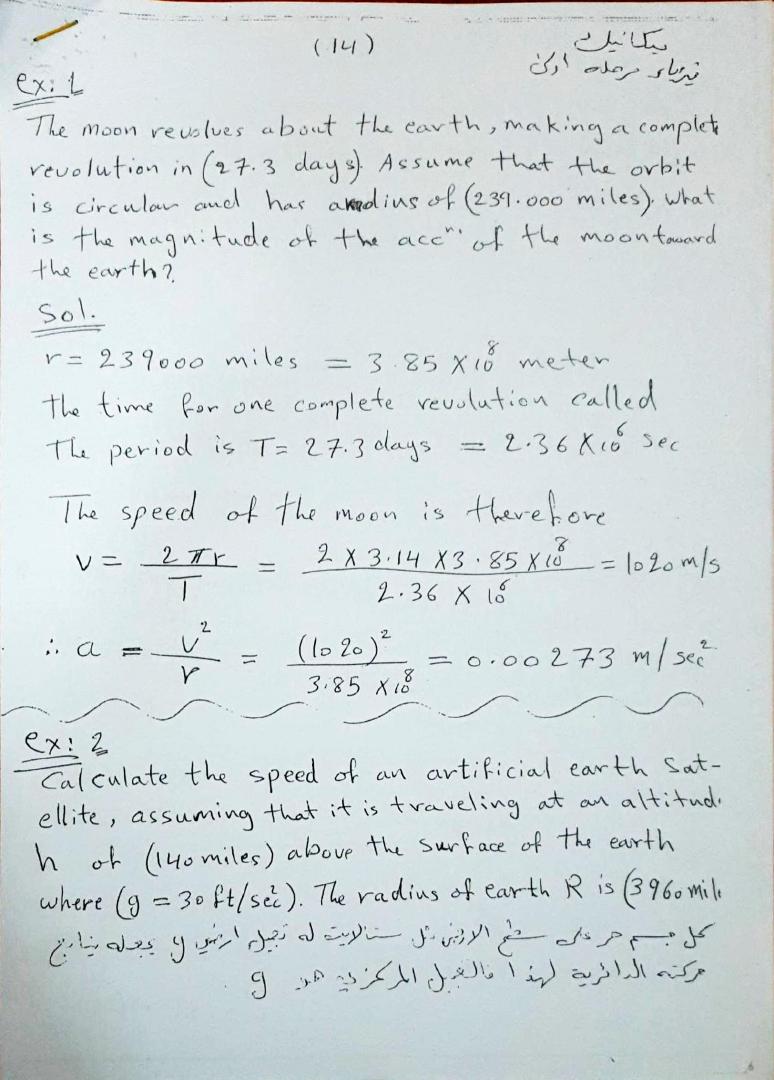 (14)
ميكانيك
فيزياء مرحلة اولى
ex: 1
The moon revolves about the earth, making a complet
revolution in (27.3 days). Assume that the orbit
is circular and has a radius of (239.000 miles). What
is the magnitude of the accⁿ. of the moon toward
the earth?
Sol.
r = 239000 miles = 3.85 X 10⁸ meter
the time for one complete revolution called
The period is T = 27.3 days = 2.36 X 10⁶ sec
The speed of the moon is therefore
v = 2πr / T = 2 X 3.14 X 3.85 X 10⁸ / 2.36 X 10⁶ = 1020 m/s
∴ a = v² / r = (1020)² / 3.85 X 10⁸ = 0.00273 m/sec²
ex: 2
Calculate the speed of an artificial earth Sat-
ellite, assuming that it is traveling at an altitud
h of (140 miles) above the surface of the earth
where (g = 30 ft/sec²). The radius of earth R is (3960 mil
كل جسم حر على سطح الارض مثل ستالايت له تعجيل ارضي g يجعله
حركته الدائرية لهذا فالتعجيل المركزي هو g